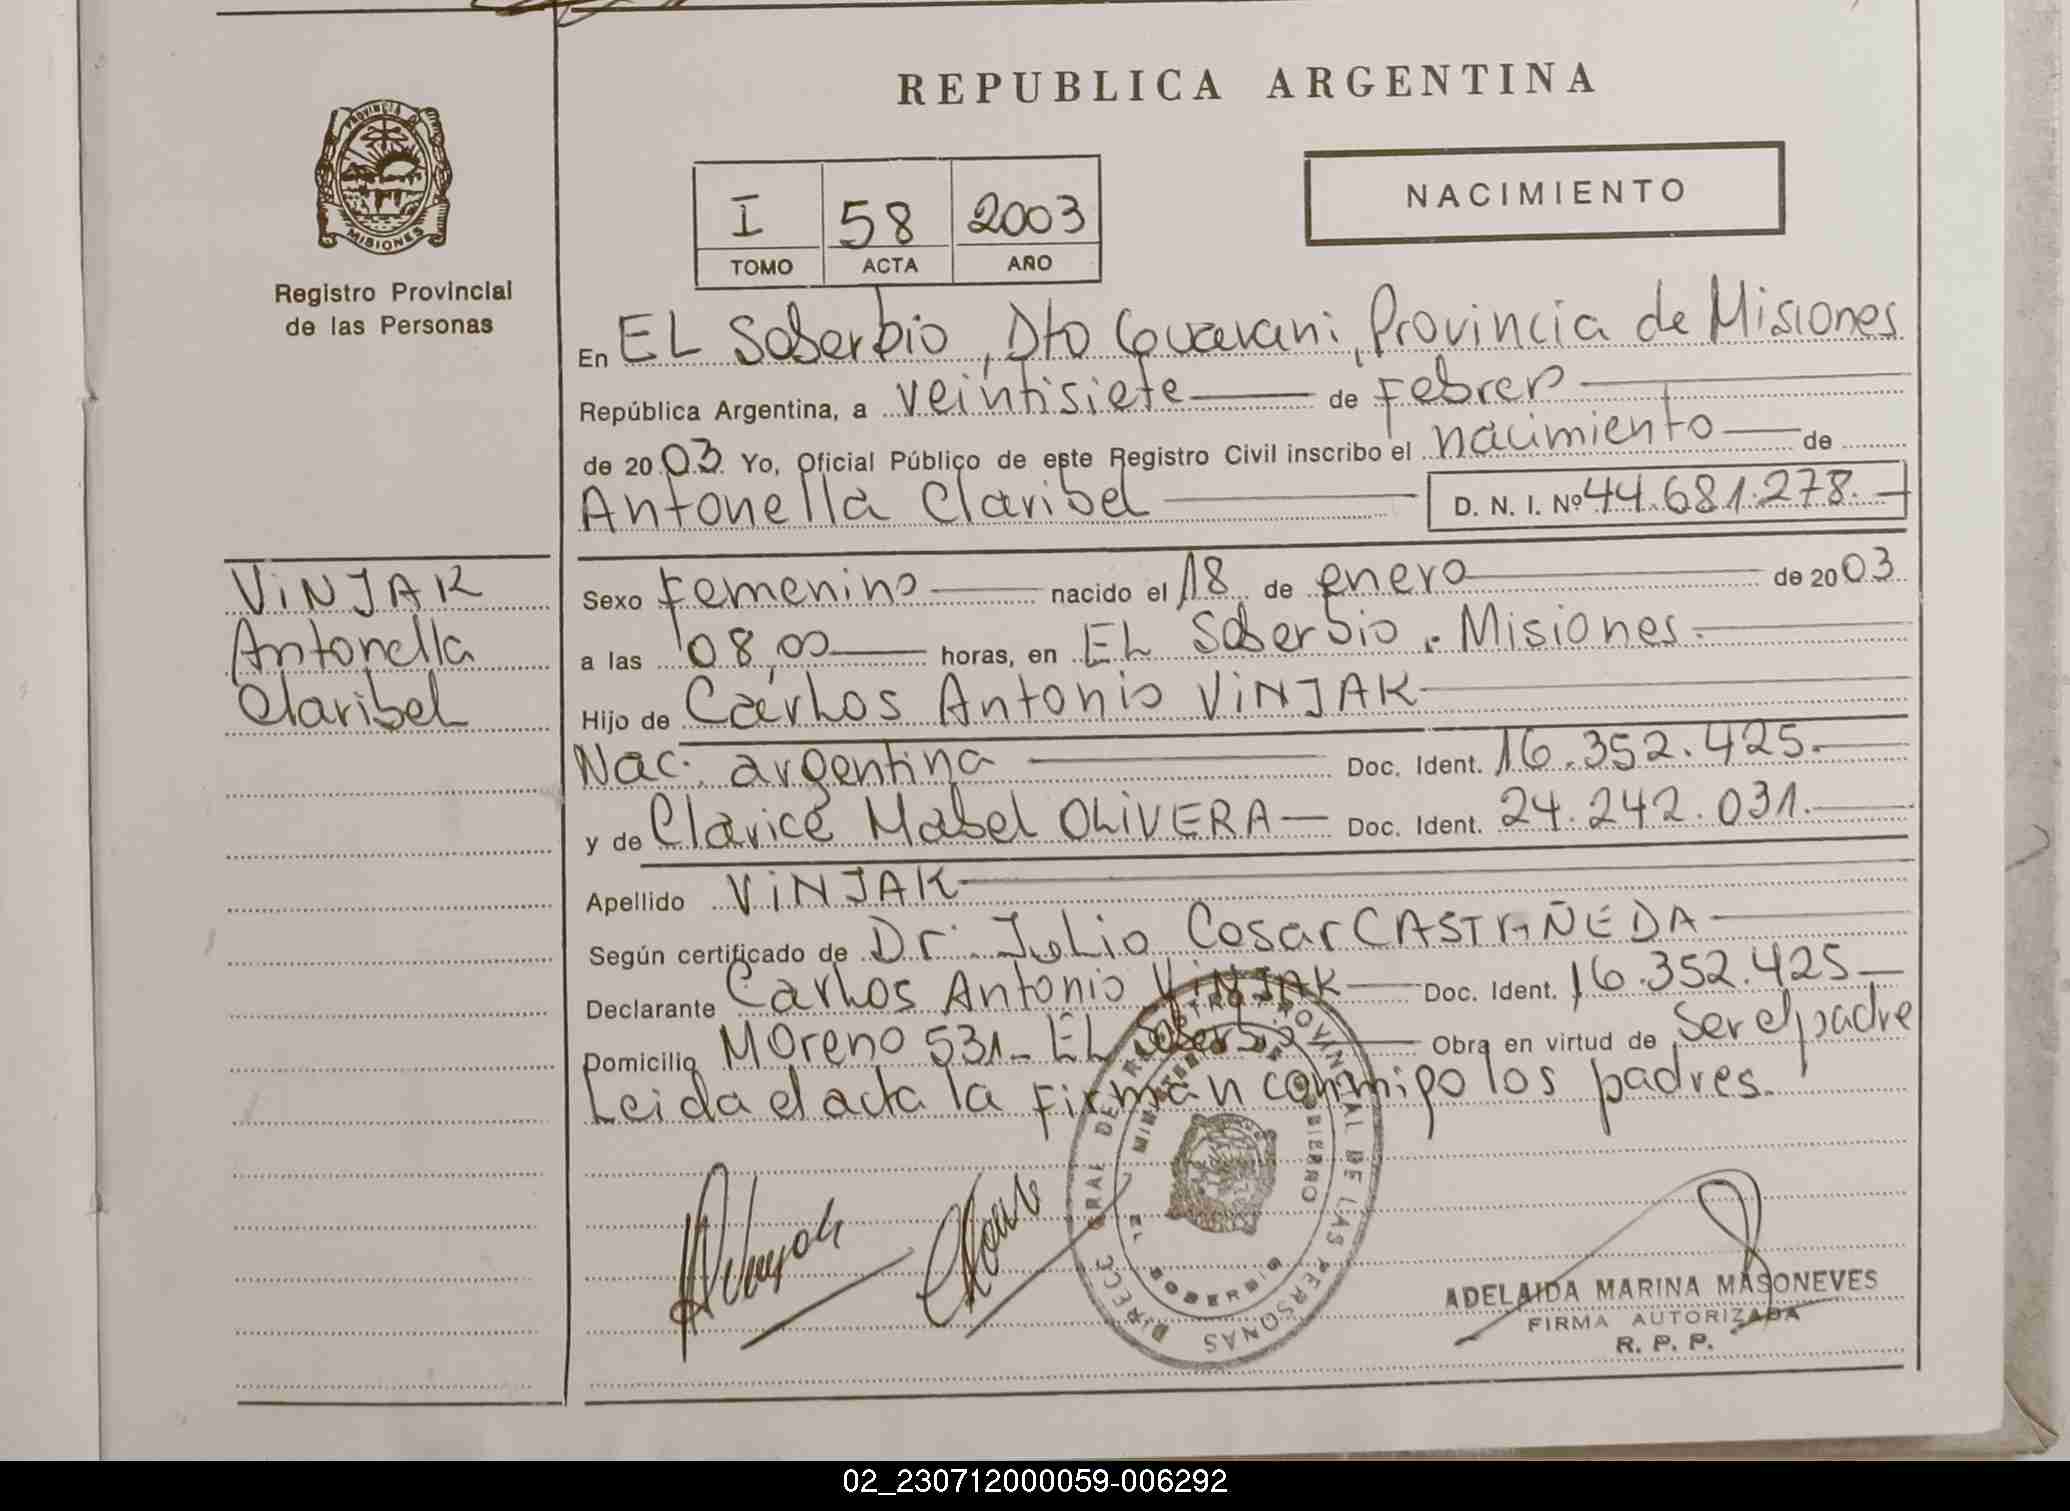 REPUBLICA ARGENTINA
PROVINCIA D
MISIONES
Registro Provincial
de las Personas
I 58 2003
TOMO ACTA AÑO
NACIMIENTO
En EL Soberbio, Dto Guarani, Provincia de Misiones
República Argentina, a veintisiete de Febrero
de 2003 Yo, Oficial Público de este Registro Civil inscribo el nacimiento de
Antonella Claribel D. N. I. Nº 44.681.278.
VINJAK
Antonella
Claribel
Sexo Femenino nacido el 18 de enero de 2003
a las 08,00 horas, en EL Soberbio. Misiones.
Hijo de Carlos Antonio VINJAK
Nac. argentina Doc. Ident. 16.352.425.
y de Clarice Mabel OLIVERA Doc. Ident. 24.242.031.
Apellido VINJAK
Según certificado de Dr. Julio Cesar CASTAÑEDA
Declarante Carlos Antonio VINJAK Doc. Ident. 16.352.425
Domicilio Moreno 531 - EL Soberbio Obra en virtud de ser el padre
Leida el acta la Firman conmigo los padres.
DIRECC GRAL DE REGISTRO PROVINCIAL DE LAS PERSONAS
MINISTERIO DE GOBIERNO
EL SOBERBIO
ADELAIDA MARINA MASONEVES
FIRMA AUTORIZADA
R. P. P.
02_230712000059-006292